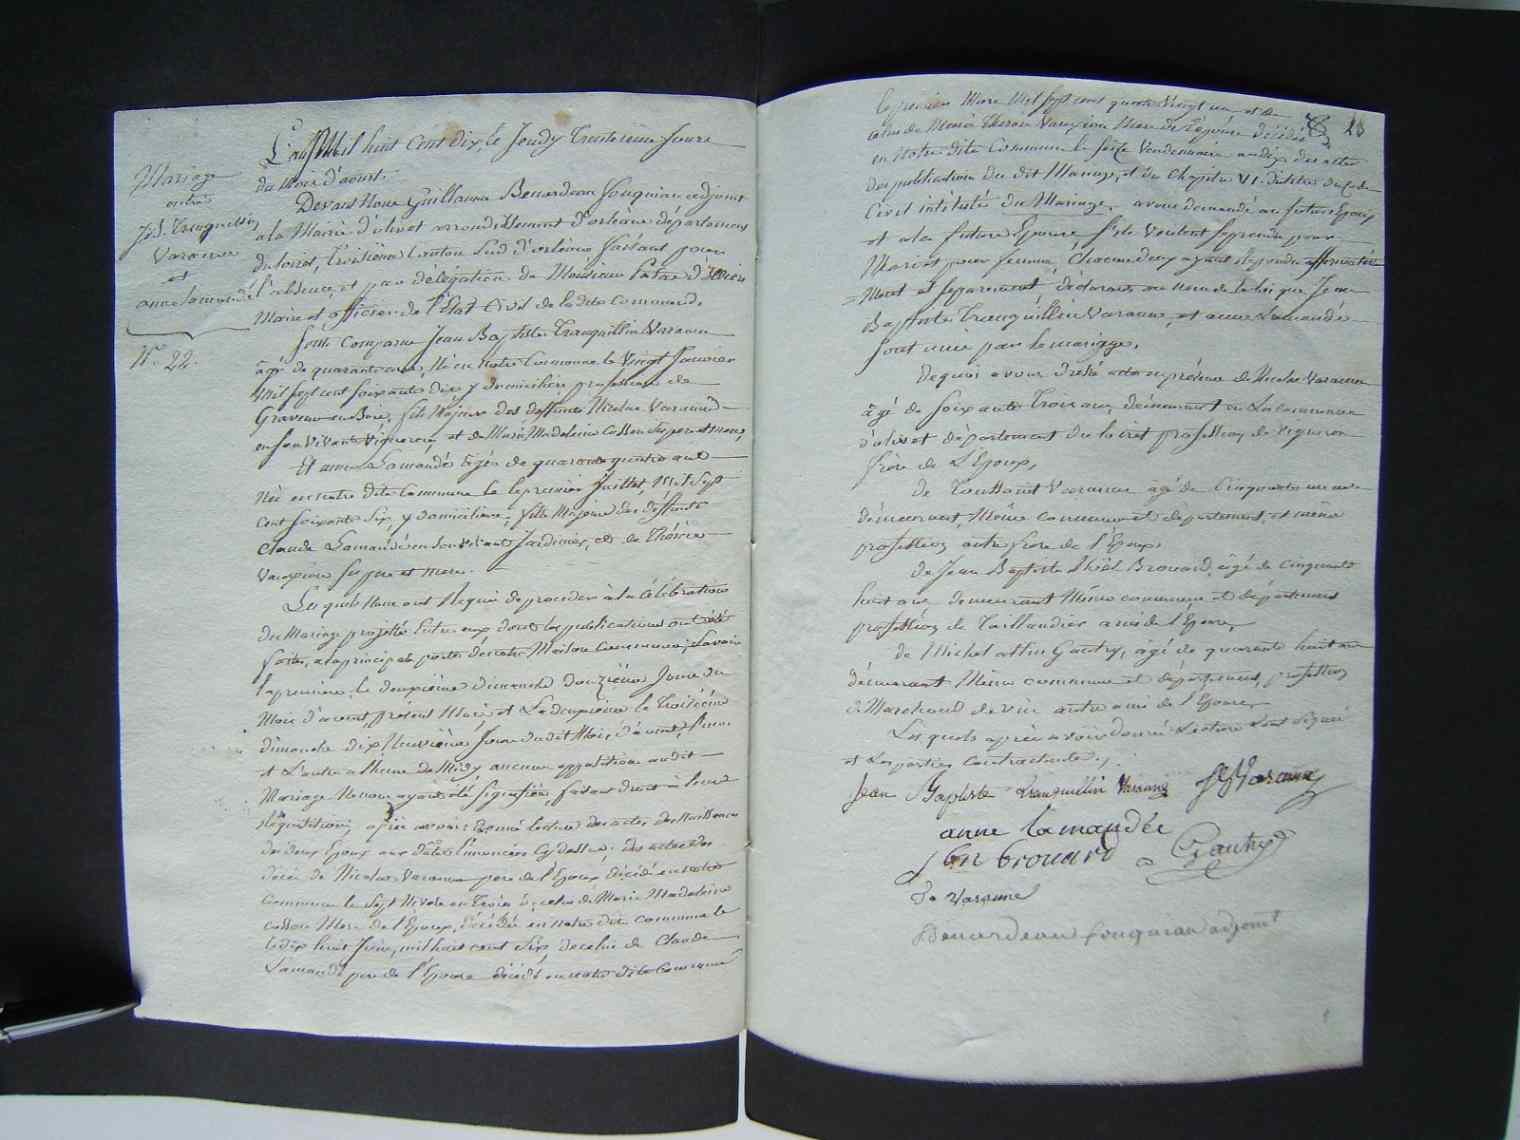 Mariage
entre
J.B. Tranquillin
Varanne
et
anne Lamandé
N.º 22.
L'an Mil huit Cent dix, le Jeudy Trentieme Jour
du Mois d'aoust.
Devant Nous Guillaume Benardeau Jouquiau adjoint
a la Mairie d'olivet arrondissement d'orleans département
du loiret, Troisieme Canton Sud d'orléans faisant pour
l'absence, et par délégation de Monsieur
Maire et officier de l'Etat Civil de la dite Commune.
Sont Comparus Jean Baptiste Tranquillin Varanne
âgé de quarante ans, Né en notre Commune le Vingt Janvier
Mil sept cent soixante dix, y domicilié, profession de
fils Majeur des deffunts Nicolas Varanne
en son Vivant Vigneron, et de Marie Madeleine Cosson Ses pere et mere,
Et anne Lamandée âgée de quarante quatre ans
Née en notre dite Commune le premier Juillet, Mil Sept
cent soixante Six, y domiciliée, fille Majeure des deffunts
Claude Lamandé en son vivant Jardinier, et de Thérèse
ses pere et mere.
Les quels Nous ont Requis de proceder à la Célébration
du Mariage projetté Entre eux, dont les publications ont été
faites, a la principale porte de notre Maison Commune, Savoir
la premiere, le deuxième dimanche douzième Jour du
Mois d'aoust, présent Mois, et La deuxième le Troisième
dimanche dix Neuvième Jour du dit Mois d'aoust, l'une
et L'autre a l'heure de Midy aucune opposition audit
Mariage Ne nous ayant été Signifiée, faisant droit à leur
Réquisition, après avoir donné lecture des actes de Naissance
des deux Epoux aux dattes Enoncées Cy dessus, des actes de
décès de Nicolas Varanne pere de l'Epoux décédé en notre
Commune le Sept Nivose an Treize, de celui de Marie Madeleine
Cosson Mere de l'Epoux, décédée en notre dite commune le
dix huit Juin, mil huit cent Six, de celui de Claude
Lamandé pere de l'Epouse décédé en notre dite Commune
23
le premier Mars Mil Sept cent quatre Vingt un et de
celui de Marie Therese Mere de l'épouse décédée
en Notre dite Commune le Seize Vendemiaire an dix des actes
des publications du dit Mariage, et du Chapitre VI. du titre du Code
Civil intitulé du Mariage, avons demandé au futur Epoux
et a la future Epouse S'ils Veulent Se prendre pour
Mari et pour femme, Chacun d'eux ayant répondu affirmative-
=Ment et séparément, déclarons au nom de la loi que Jean
Baptiste Tranquillin Varanne, et anne Lamandé
Sont unis par le mariage.
De quoi avons dressé acte en présence de Nicolas Varanne
âgé de Soixante Trois ans, demeurant en La commune
d'olivet département du loiret profession de Vigneron
frère de L'Epoux,
de Toussaint Varanne âgé de Cinquante un ans
demeurant, Même commune et département, et même
profession autre frère de l'Epoux.
de Jean Baptiste Noël Brouard, âgé de Cinquante
huit ans demeurant Même commune et département
profession de Taillandier ami de l'Epouse,
de Michel Gautry, âgé de quarante huit ans
demeurant Même commune et département, profession
de Marchand de vin autre ami de l'Epouse,
Les quels après avoir donné Lecture Sont Signé
et Les parties Contractantes,
Jean Baptiste Tranquillin Varanne Varanne
anne lamandée
jbn brouard Gautry
Varanne
Benardeau Jouquiau adjoint